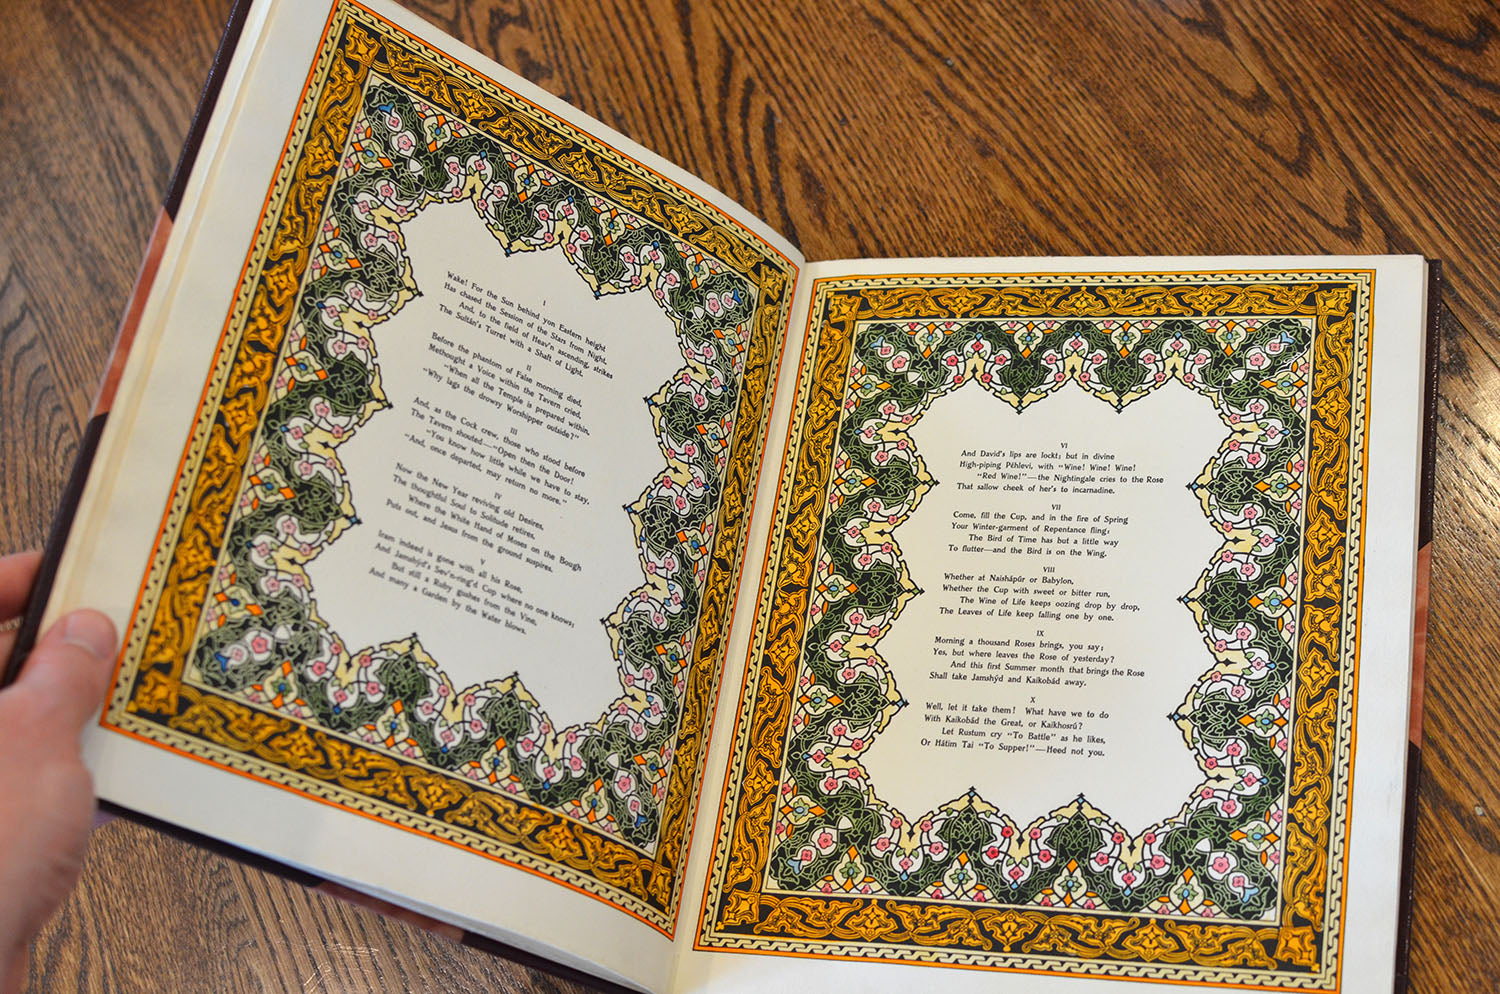 I
Wake! For the Sun behind yon Eastern height
Has chased the Session of the Stars from Night,
And, to the field of Heav'n ascending, strikes
The Sultán's Turret with a Shaft of Light.
II
Before the phantom of False morning died,
Methought a Voice within the Tavern cried,
"When all the Temple is prepared within,
"Why lags the drowsy Worshipper outside?"
III
And, as the Cock crew, those who stood before
The Tavern shouted—"Open then the Door!
"You know how little while we have to stay,
"And, once departed, may return no more."
IV
Now the New Year reviving old Desires,
The thoughtful Soul to Solitude retires,
Where the White Hand of Moses on the Bough
Puts out, and Jesus from the ground suspires.
V
Iram indeed is gone with all his Rose,
And Jamshýd's Sev'n-ring'd Cup where no one knows;
But still a Ruby gushes from the Vine,
And many a Garden by the Water blows.
VI
And David's lips are lockt; but in divine
High-piping Péhlevi, with "Wine! Wine! Wine!
"Red Wine!"—the Nightingale cries to the Rose
That sallow cheek of her's to incarnadine.
VII
Come, fill the Cup, and in the fire of Spring
Your Winter-garment of Repentance fling;
The Bird of Time has but a little way
To flutter—and the Bird is on the Wing.
VIII
Whether at Naishápúr or Babylon,
Whether the Cup with sweet or bitter run,
The Wine of Life keeps oozing drop by drop,
The Leaves of Life keep falling one by one.
IX
Morning a thousand Roses brings, you say;
Yes, but where leaves the Rose of yesterday?
And this first Summer month that brings the Rose
Shall take Jamshýd and Kaikobád away.
X
Well, let it take them! What have we to do
With Kaikobád the Great, or Kaikhosrú?
Let Rustum cry "To Battle" as he likes,
Or Hátim Tai "To Supper!"—Heed not you.